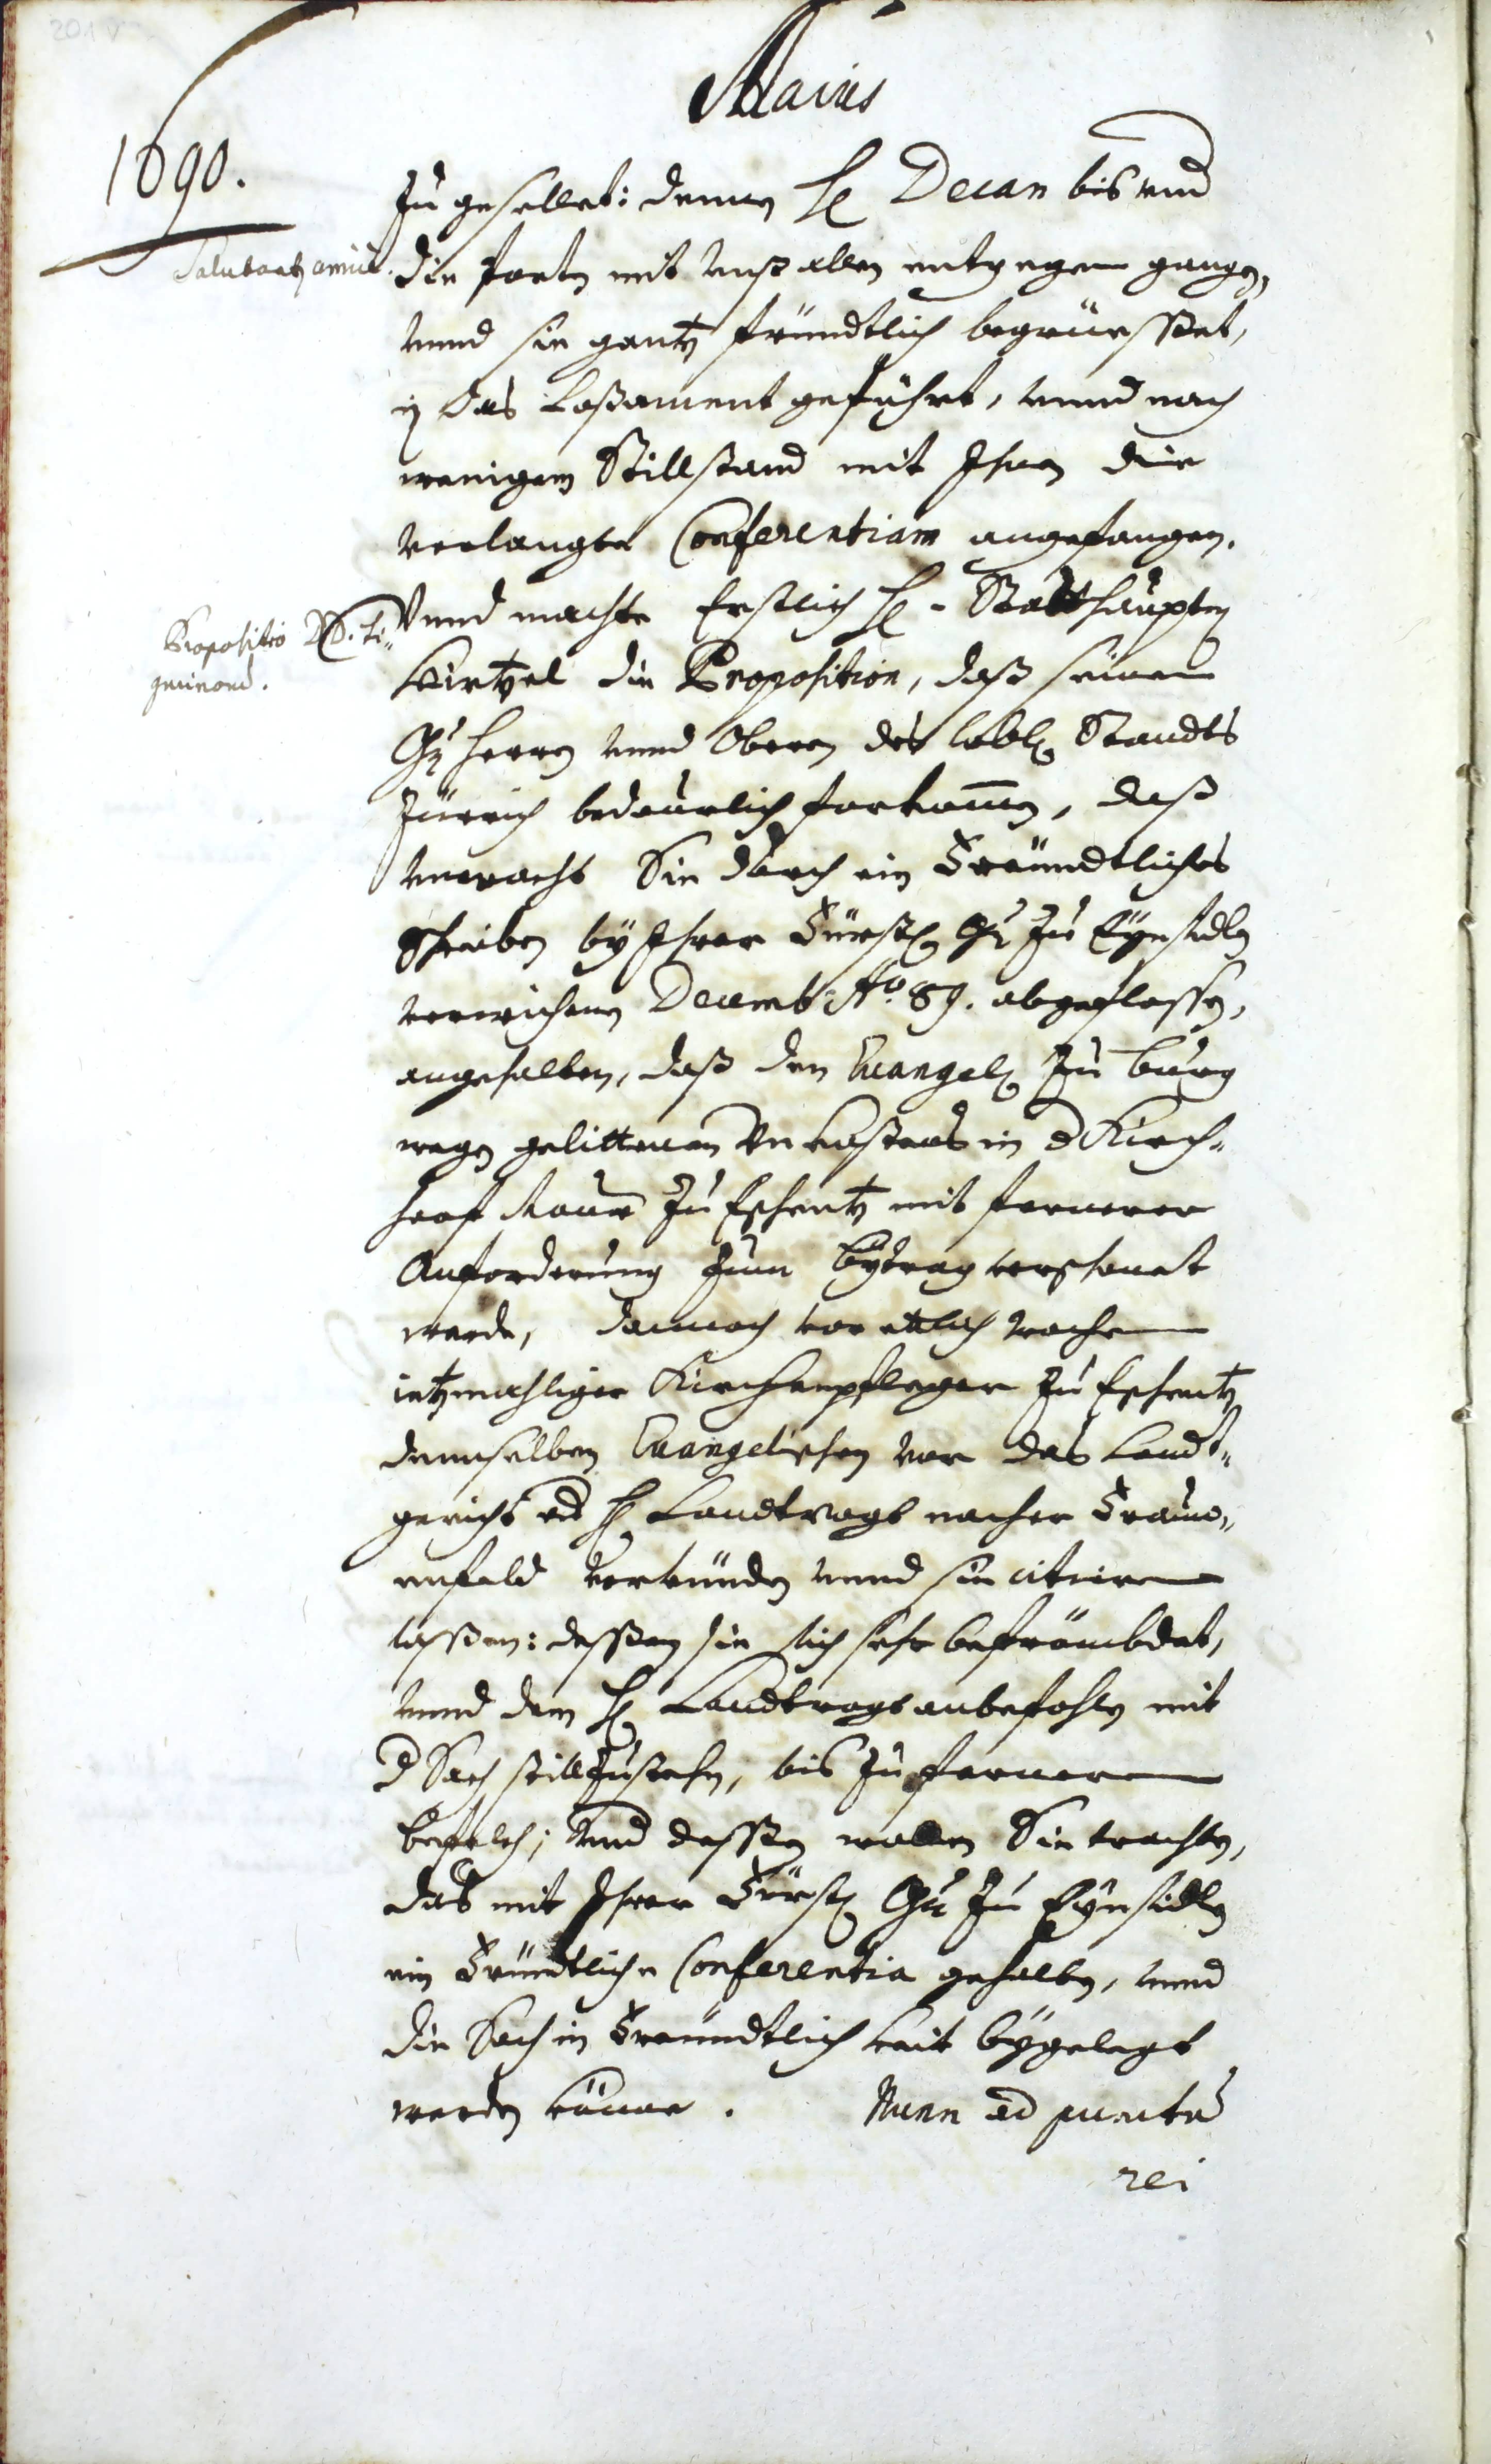 201 v
Maius
1690.
zu gesellet: denen H. Decan bis und
Salutantur amice.
die Porten mit unß allen entgegen gangen,
unnd sie gantz fründtlich begrüesset,
in das Loßament geführt, unnd nach
wenigem Stillstand mit Ihnen die
verlangte Conferentiam angefangen.
Propositio DD. Ti-
gurinorum.
Unnd machte Erstlich H. Statthaupten
Hirtzel die Proposition, daß seinen
Gn. Herren unnd Oberen des lobl. Standts
Zürich bedaurlich vorkommen, daß
uneracht Sie durch ein Freündtliches
Schreiben by Ihrer Fürstl. Gn. zu Eynsidlen
verwichenen Decemb. Aº. 89. abgeflossen,
angehalten, daß den Evangel. zu Burg
wegen gelittenen Unkostens in d. Kirch-
hoof Maur zu Eschentz mit fernerer
Anforderung zum Bytrag verschonet
werde, dannoch vor etlich wochen
ietzmahliger Kirchenpfleger zu Eschentz
denselben Evangelischen vor das Landt-
gericht H. Landtvogt nacher Frauw-
enfeld verkünden unnd sie citieren
lassen: dessen sie sich sehr befrömbdet,
unnd dem H. Landtvogt anbefohlen mit
d. Sach stillzustehen, bis zu fernerem
befelch; Und dessen wollen Sie trachten,
das mit Ihrer Fürstl. Gn. zu Eynsidlen
ein Fründtliche Conferentia gehalten, unnd
die Sach in Freündtlichkeit bygelegt
werden könne. Nunn ad punctum
rei